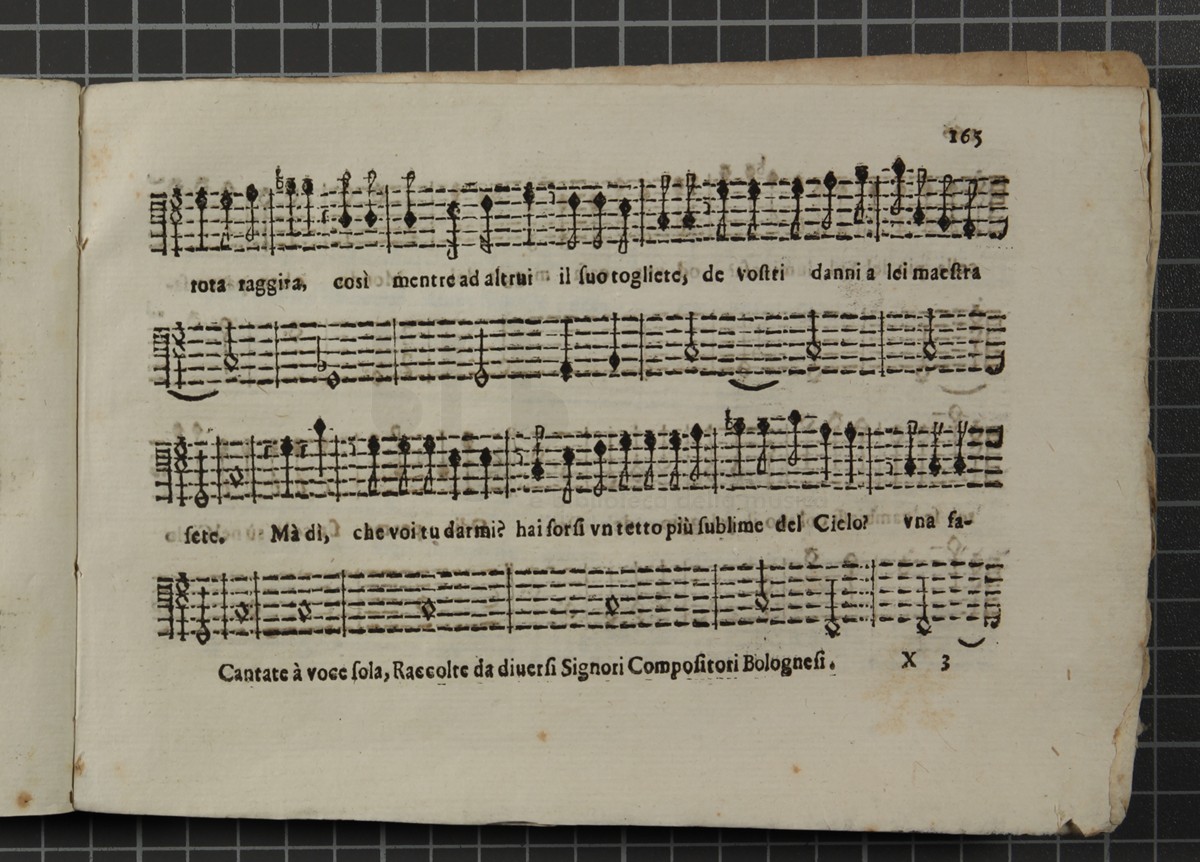 165
rota raggira, così mentre ad altrui il ſuo togliete, de voſtri danni a lei maeſtra
ſete. Mà dì, che voi tu darmi? hai forſi vn tetto più ſublime del Cielo? vna fa-
Cantate à voce ſola, Raccolte da diuerſi Signori Compoſitori Bologneſi. X 3